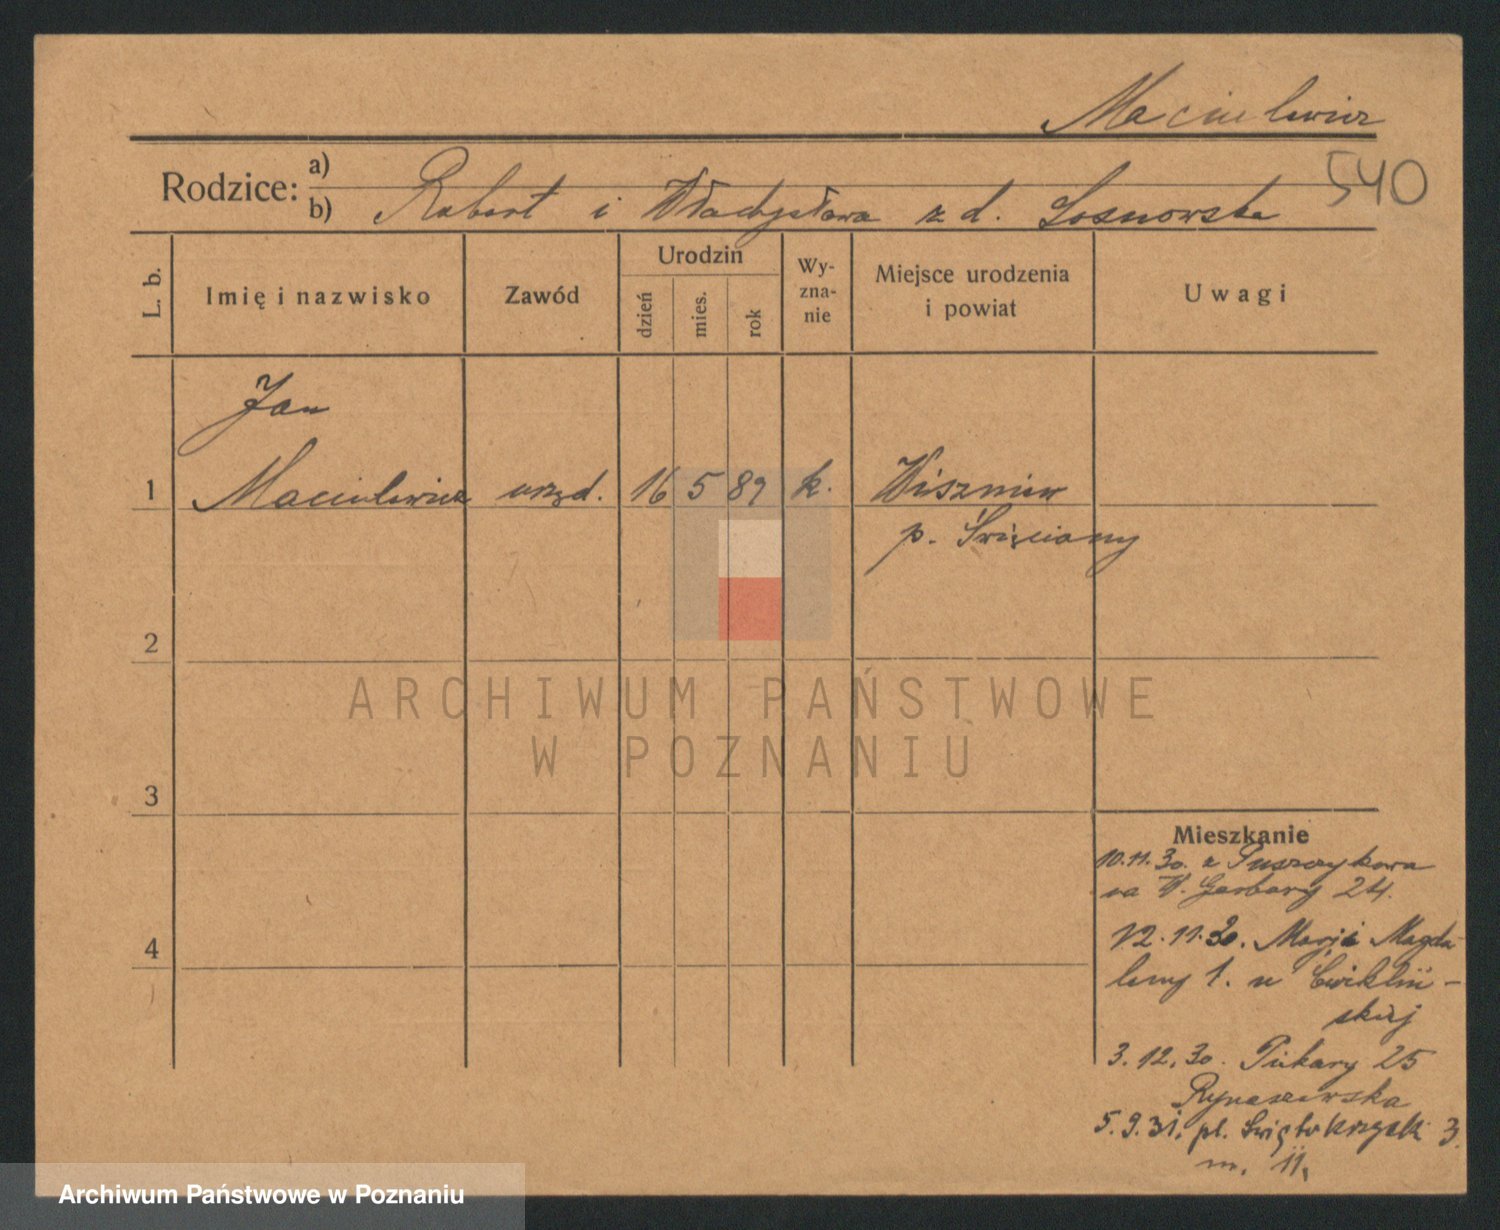 Maciulewicz
540
Rodzice: a)
b) Robert i Władysława z d. Sosnowska
L. b.
Imię i nazwisko
Zawód
Urodzin
dzień
mies.
rok
Wy-
zna-
nie
Miejsce urodzenia
i powiat
Uwagi
Jan
1 Maciulewicz urzęd. 16 5 89 k. Wiszniew
p. Święciany
2
3
4
ARCHIWUM PAŃSTWOWE
W POZNANIU
Mieszkanie
10.11.30. z Puszczykowa
na W. Garbary 24.
12.11.30. Marji Magda-
leny 1. u Ćwikliń-
skiej
3.12.30. Piekary 25
Rynaszewska
5.9.31. pl. Świętokrzysk. 3.
m. 11.
Archiwum Państwowe w Poznaniu